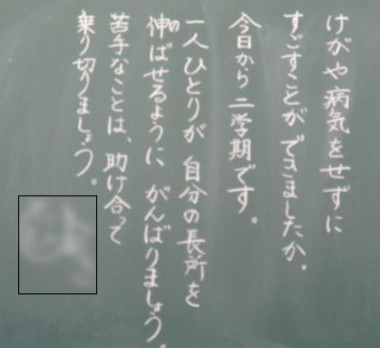 けがや病気をせずに
すごすことができましたか。
今日から二学期です。
一人ひとりが自分の長所を
伸ばせるようにがんばりましょう。
苦手なことは、助け合って
乗り切りましょう。